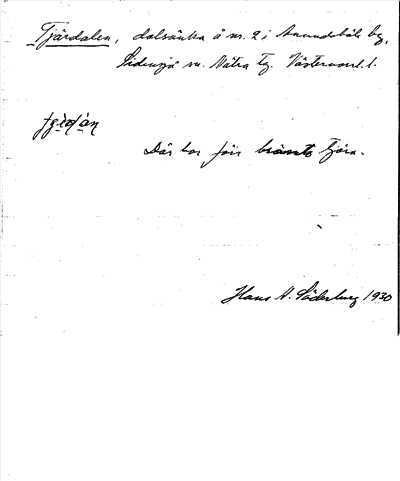 Tjärdalen, dalsänka å nr. 2 i Anundsböle by,
Sidensjö sn. Nätra tg. Västernorrl. l.
Där har förr bränts tjära.
Hans A. Söderberg 1930